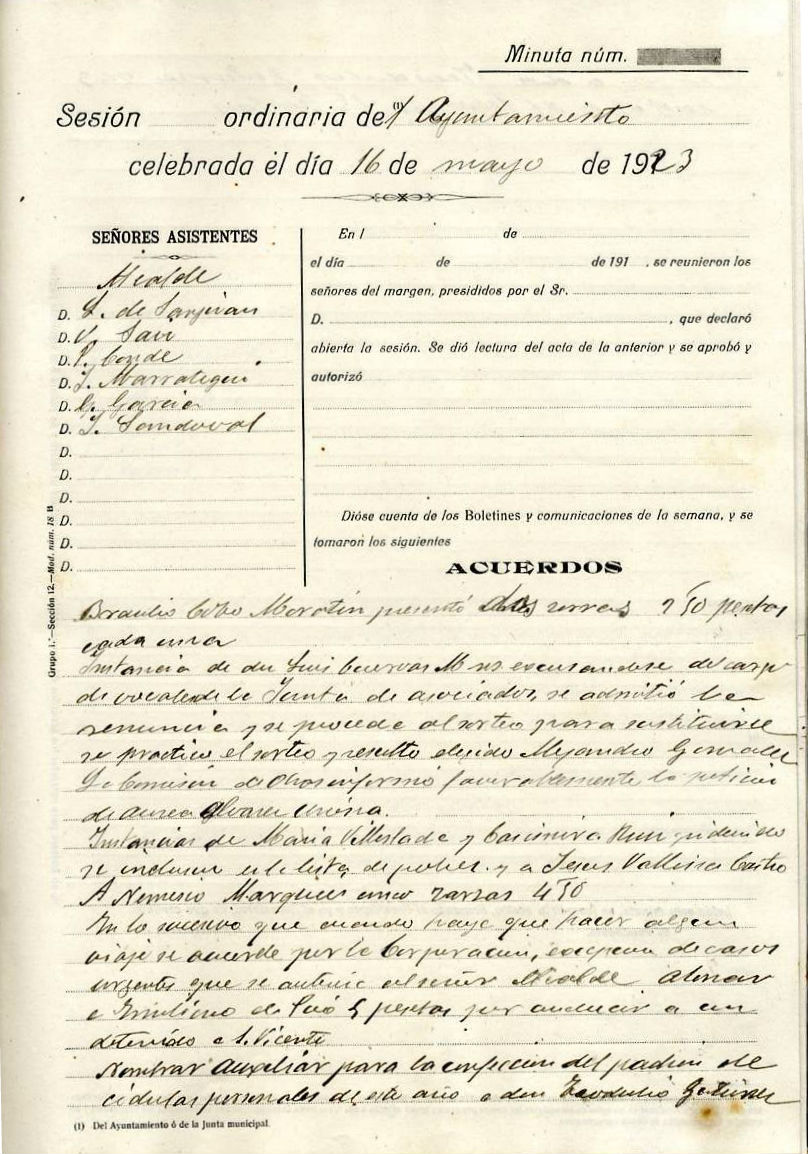 Minuta núm.
Sesión ordinaria del (1) Ayuntamiento
celebrada el día 16 de mayo de 1923
SEÑORES ASISTENTES
Alcalde
D. L. de
D. V.
D. P. Conde
D. J. Marrategui
D. G. Garcia
D. J. Sandoval
D.
D.
D.
D.
D.
D.
En l de
el día de de 191 , se reunieron los
señores del margen, presididos por el Sr.
D. , que declaró
abierta la sesión. Se dió lectura del acta de la anterior y se aprobó y
autorizó
Dióse cuenta de los Boletines y comunicaciones de la semana, y se
tomaron los siguientes
ACUERDOS
Braulio Cobo Moratin presentó dos zorras 2'50 pesetas
cada una
Instancia de don Luis Cuervas Mons excusandose del cargo
de vocal de la Junta de asociados, se admitió la
renuncia y se procede al sorteo para sustituirle
se practico el sorteo y resulto elegido Alejandro Gonzalez
La Comision de Obras informó favorablemente la peticion
de Aurea Alvarez
Instancias de Maria y Casimira Ruiz pidiendo
se incluyan en la lista de pobres y a Jesus Castro
A Nemesio Marques cinco 4'50
En lo sucesivo que cuando haya que hacer algun
viaje se acuerde por la Corporacion, excepcion de casos
urgentes que se autorice al señor Alcalde. Abonar
a Emiliano de 5 pesetas por conducir a un
detenido a S. Vicente
Nombrar Auxiliar para la confeccion del padron de
cédulas personales de este año a don Teodulio Gutierrez
(1) Del Ayuntamiento ó de la Junta municipal.
Grupo 1.º—Sección 12.—Mod. núm. 18 B